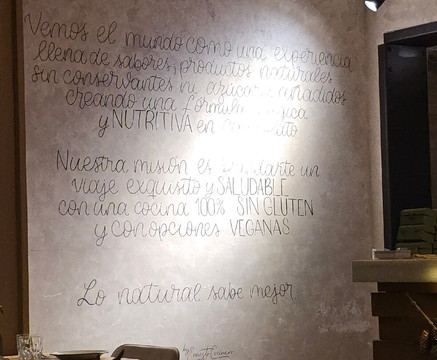 Vemos el mundo como una experiencia
llena de sabores, productos naturales
sin conservantes ni azúcares añadidos
creando una formula
y NUTRITIVA en
Nuestra misión es un
viaje exquisito y SALUDABLE
con una cocina 100% SIN GLUTEN
y con opciones VEGANAS
Lo natural sabe mejor